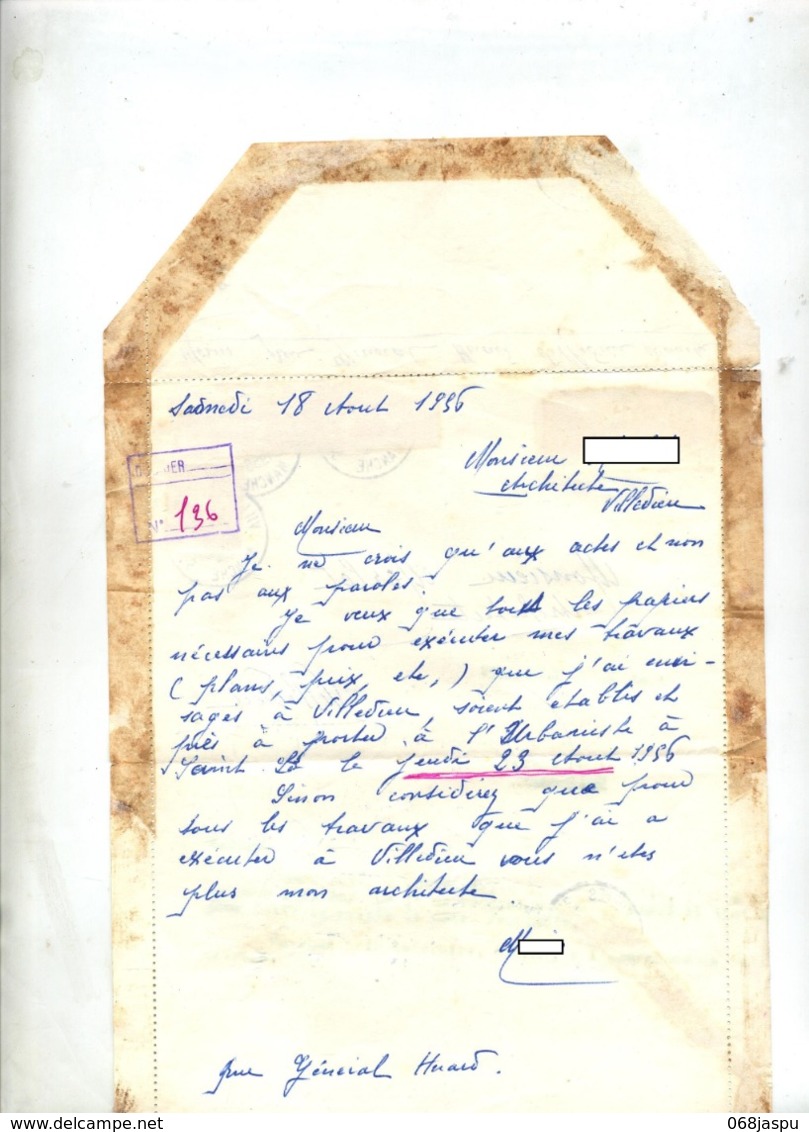 Samedi 18 Aout 1956
Monsieur
Architecte
Villedieu
DOSSIER
N° 136
Monsieur
Je ne crois qu'aux actes et non
pas aux paroles.
Je veux que tout les papiers
nécessaires pour exécuter mes travaux
(plans, prix, etc,) que j'ai envi-
sagés à Villedieu, soient établis et
près à porter à l'Urbaniste à
Saint Lô le Jeudi 23 Aout 1956
Sinon considérez que pour
tous les travaux que j'ai a
exécuter à Villedieu vous n'etes
plus mon architecte.
rue Général Huard.
068jaspu